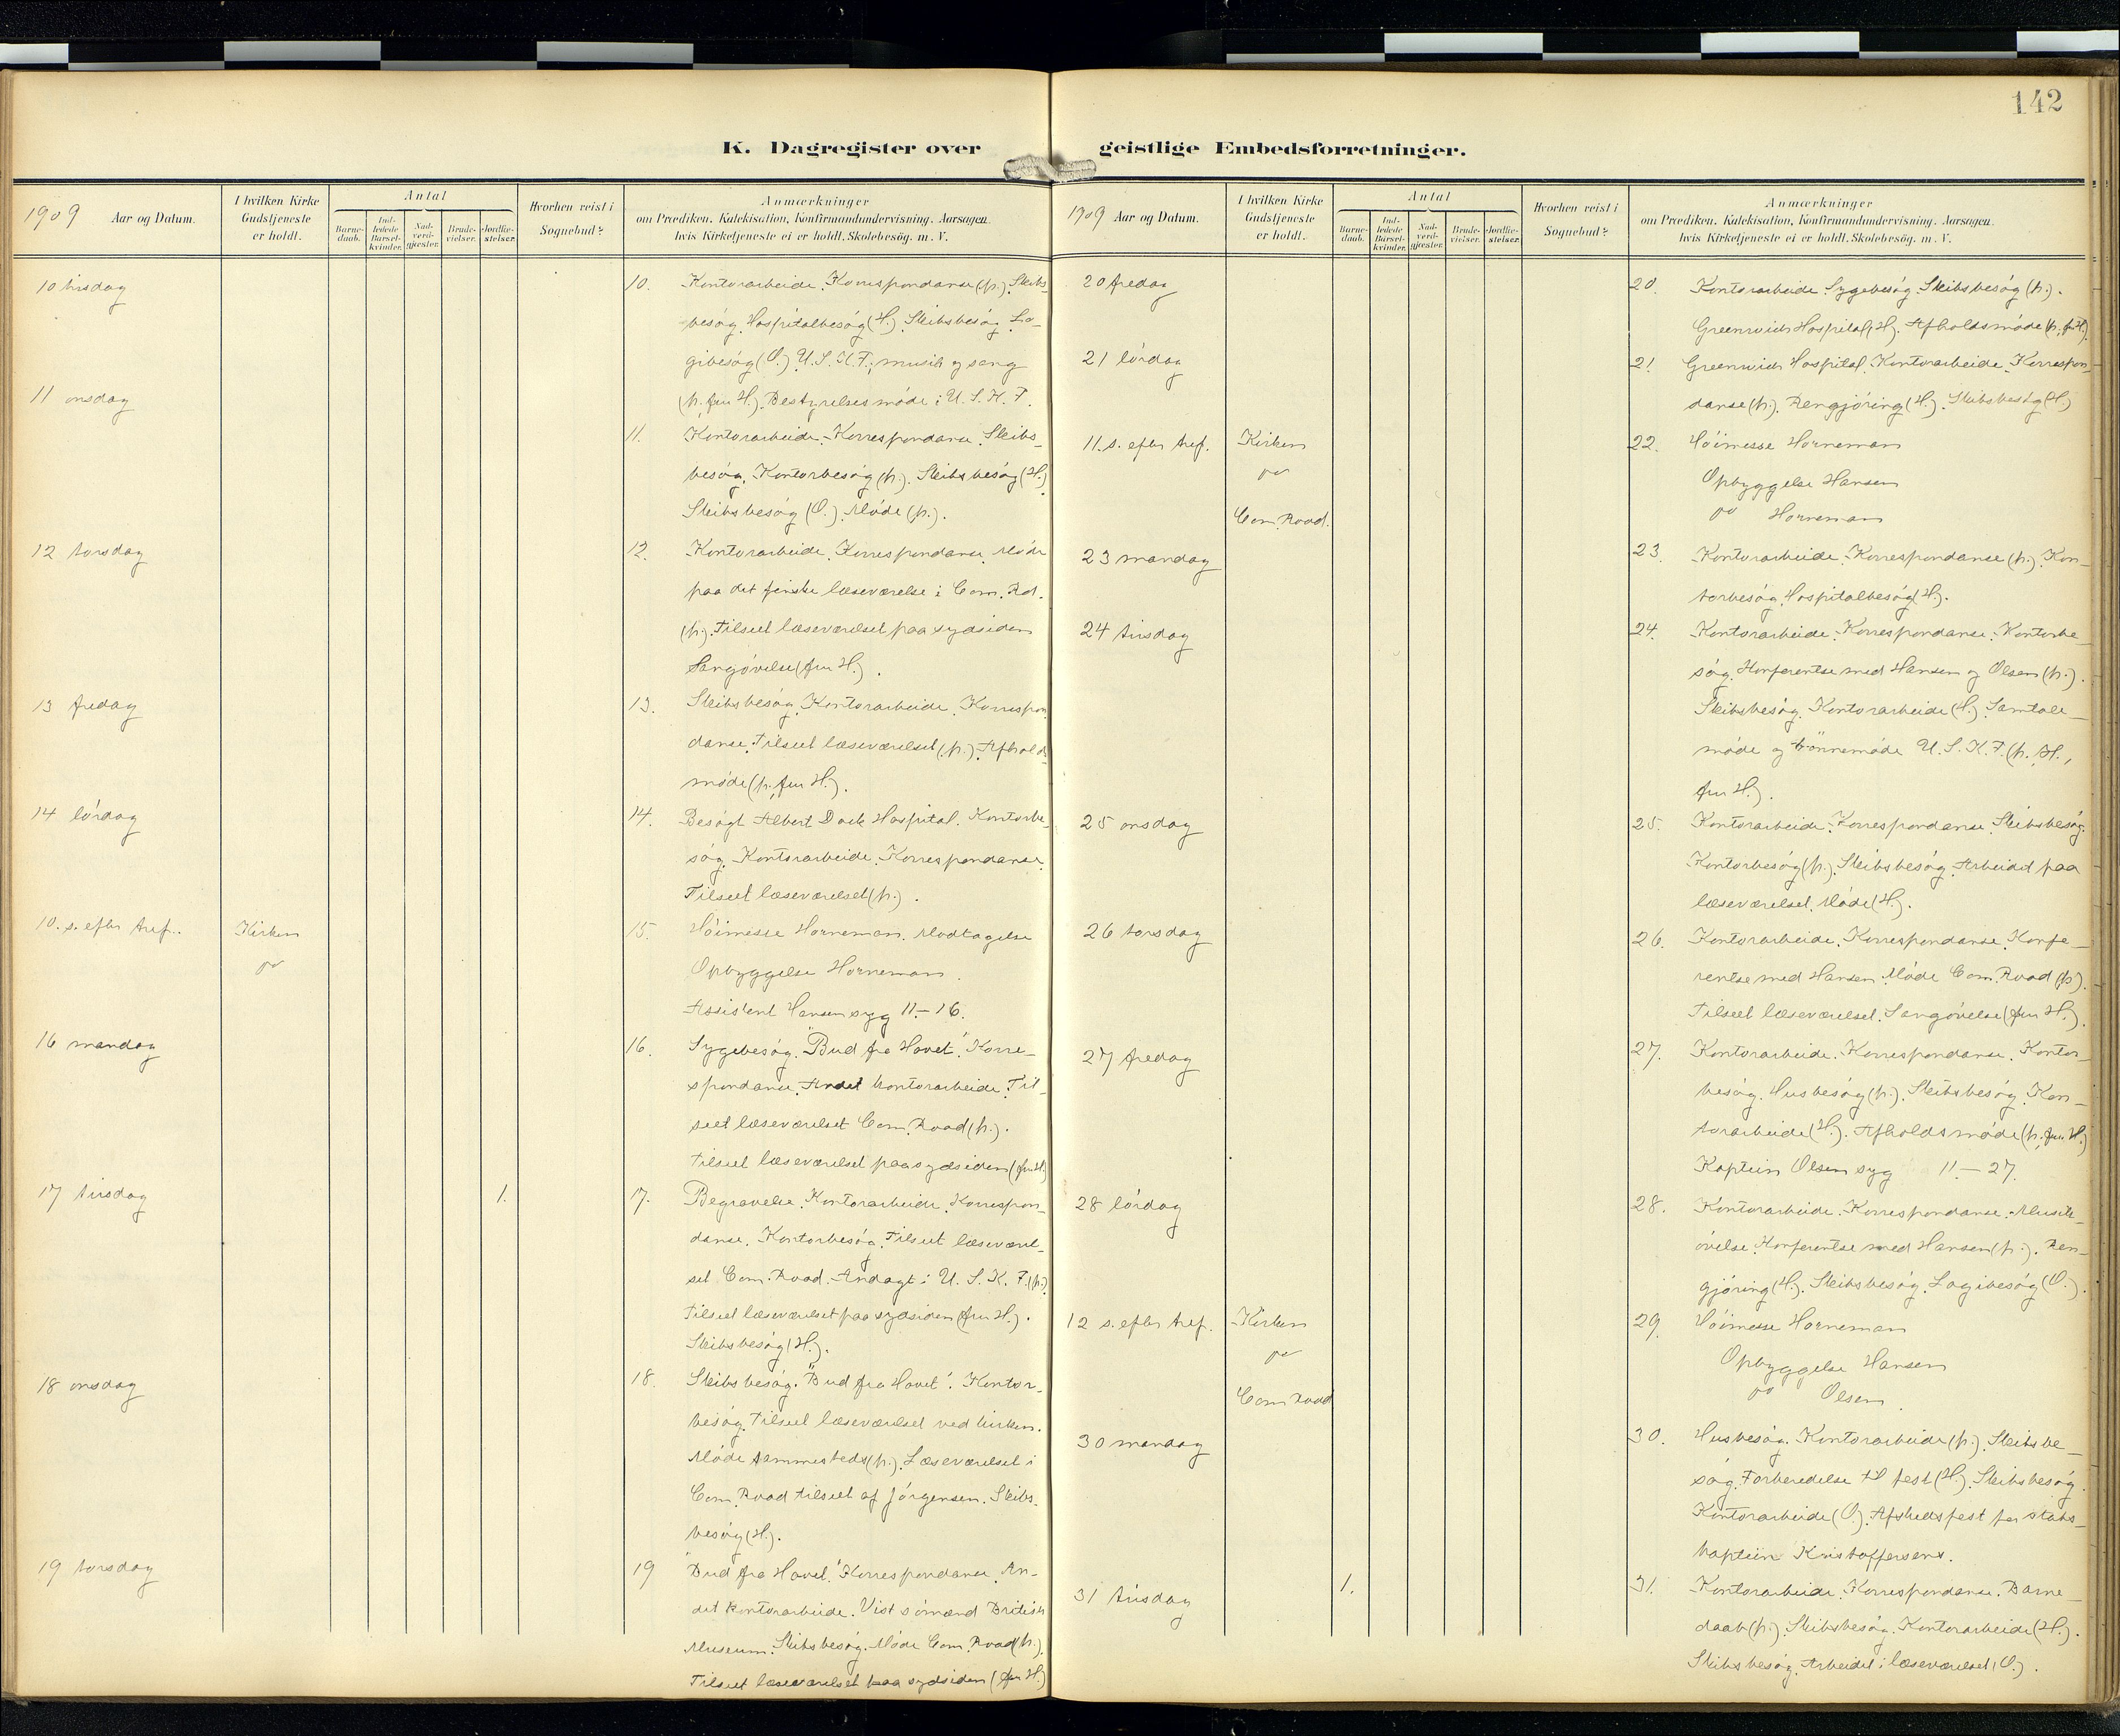 142
K. Dagregister over geistlige Embedsforretninger.
1909 Aar og Datum.
I hvilken Kirke Gudstjeneste er holdt.
Antal
Barnedaab.
Indledede Barselkvinder.
Nadverdgjæster.
Brudevielser.
Jordfæstelser.
Hvorhen reist i Sognebud?
Anmærkninger
om Prædiken, Katekisation, Konfirmandundervisning, Aarsagen,
hvis Kirketjeneste ei er holdt, Skolebesög. m. V.
10 tirsdag
10. Kontorarbeide. Korrespondanse (p.). Skibs-
besög. Hospitalbesög (H.). Skibsbesög. Lo-
gibesög (O.). U. S. K. F., musik og sang
(p. fru H.). Bestyrelsesmöde i U. S. K. F.
11 onsdag
11. Kontorarbeide. Korrespondanse. Skibs-
besög. Kontorbesög (p.). Skibsbesög (H.)
Skibsbesög (O.). Möde (p.).
12 torsdag
12. Kontorarbeide. Korrespondanse. Möde
paa det finske læseværelse i Com. Rd.
(p.). Tilseet læseværelset paa sydsiden
Sangövelse (fru H.).
13 fredag
13. Skibsbesög. Kontorarbeide. Korrespon
danse. Tilseet læseværelset (p.). Afholds
möde (p., fru H.).
14 lördag
14. Besögt Albert Dock Hospital. Kontorbe-
sög. Kontorarbeide. Korrespondanse.
Tilseet læseværelset (p.).
10. s. efter tref.. Kirken
15. Höimesse Horneman. Modtagelse
do
Opbyggelse Horneman.
Assistent Hansen syg 11.-16.
16 mandag
16. Sygebesög. "Bud fra Havet". Korre-
spondanse. Andet kontorarbeide. Til-
seet læseværelset Com. Road (p.).
Tilseet læseværelset paa sydsiden (fru H.)
17 tirsdag 1.
17. Begravelse. Kontorarbeide. Korrespon-
danse. Kontorbesög. Tilseet læseværel-
set Com. Road. Andagt i U. S. K. F. (p.)
Tilseet læseværelset paa sydsiden (fru H.).
Skibsbesög (H.).
18 onsdag
18. Skibsbesög. "Bud fra Havet". Kontor-
besög. Tilseet læseværelset ved kirken.
Möde sammesteds (p.). Læseværelset i
Com. Road tilseet af Jörgensen. Skibs-
besög (H.).
19 torsdag
19 "Bud fra Havet." Korrespondanse. An-
det kontorarbeide. Vist sömænd British
Museum. Skibsbesög. Möde Com. Road (p.).
Tilseet læseværelset paa sydsiden (fru H.)
1909 Aar og Datum.
I hvilken Kirke Gudstjeneste er holdt.
Antal
Barnedaab.
Indledede Barselkvinder.
Nadverdgjæster.
Brudevielser.
Jordfæstelser.
Hvorhen reist i Sognebud?
Anmærkninger
om Prædiken, Katekisation, Konfirmandundervisning, Aarsagen,
hvis Kirketjeneste ei er holdt, Skolebesög. m. V.
20 fredag
20. Kontorarbeide. Sygebesög. Skibsbesög (p.).
Greenwich Hospital (H.). Afholdsmöde (p., fru H.)
21 lördag
21. Greenwich Hospital. Kontorarbeide. Korrespon-
danse (p.). Rengjöring (H.). Skibsbesög (H.)
11. s. efter tref. Kirken
22. Höimesse Horneman
do
Opbyggelse Hansen
Com. Road.
do Horneman
23 mandag
23. Kontorarbeide. Korrespondanse (p.). Kon-
torbesög. Hospitalbesög (H.).
24 tirsdag
24. Kontorarbeide. Korrespondanse. Kontorbe-
sög. Konferentse med Hansen og Olsen (p.).
Skibsbesög. Kontorarbeide (H.). Samtale-
möde og bönnemöde U. S. K. F. (p. H.,
fru H.).
25 onsdag
25. Kontorarbeide. Korrespondanse. Skibsbesög.
Kontorbesög (p.). Skibsbesög. Arbeidet paa
læseværelset. Möde (H.).
26 torsdag
26. Kontorarbeide. Korrespondanse. Konfe-
rentse med Hansen. Möde Com. Road (p.).
Tilseet læseværelset. Sangövelse (fru H.).
27 fredag
27. Kontorarbeide. Korrespondanse. Kontor-
besög. Husbesög (p.). Skibsbesög. Kon-
torarbeide (H.). Afholdsmöde (p., fru H.)
Kaptein Olsen syg 11.-27.
28 lördag
28. Kontorarbeide. Korrespondanse. Musik-
övelse. Konferentse med Hansen (p.). Ren-
gjöring (H.). Skibsbesög. Logibesög (O.).
12 s. efter tref. Kirken
29. Höimesse Horneman
do
Opbyggelse Hansen
Com Road
do Olsen.
30 mandag
30. Husbesög. Kontorarbeide (p.). Skibsbe-
sög. Forberedelse til fest (H.). Skibsbesög.
Kontorarbeide (O.). Afskedsfest for stabs-
kaptein Kristoffersens.
31 tirsdag 1.
31. Kontorarbeide. Korrespondanse. Barne-
daab (p.). Skibsbesög. Kontorarbeide (H.).
Skibsbesög. Arbeidet i læseværelset (O.).